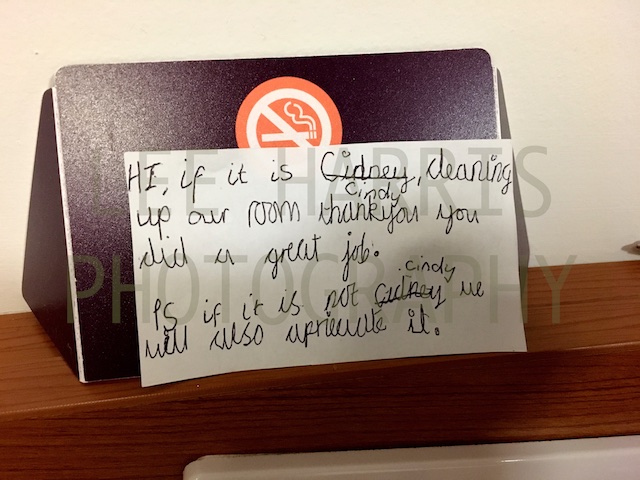 HI, if it is Cidney, cleaning
Cindy
up our room thankyou you
did a great job.
cindy
PS if it is not Cidney we
will also apriecate it.
LEE HARRIS
PHOTOGRAPHY